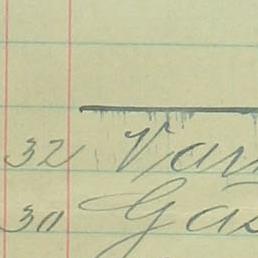 32 Van
30 Gas